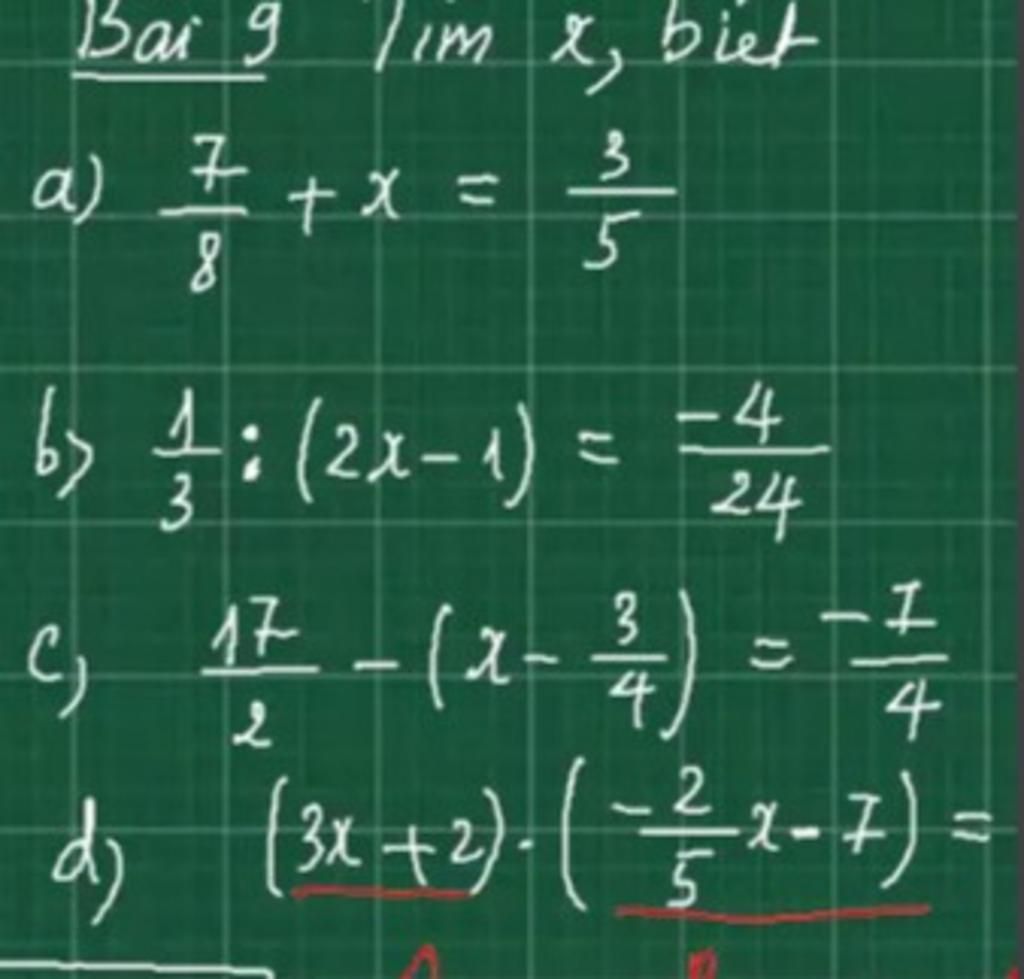 Bài 9 Tìm x, biết
a) 7/8 + x = 3/5
b) 1/3 : (2x - 1) = -4/24
c) 17/2 - (x - 3/4) = -7/4
d) (3x + 2) . (-2/5 x - 7) =